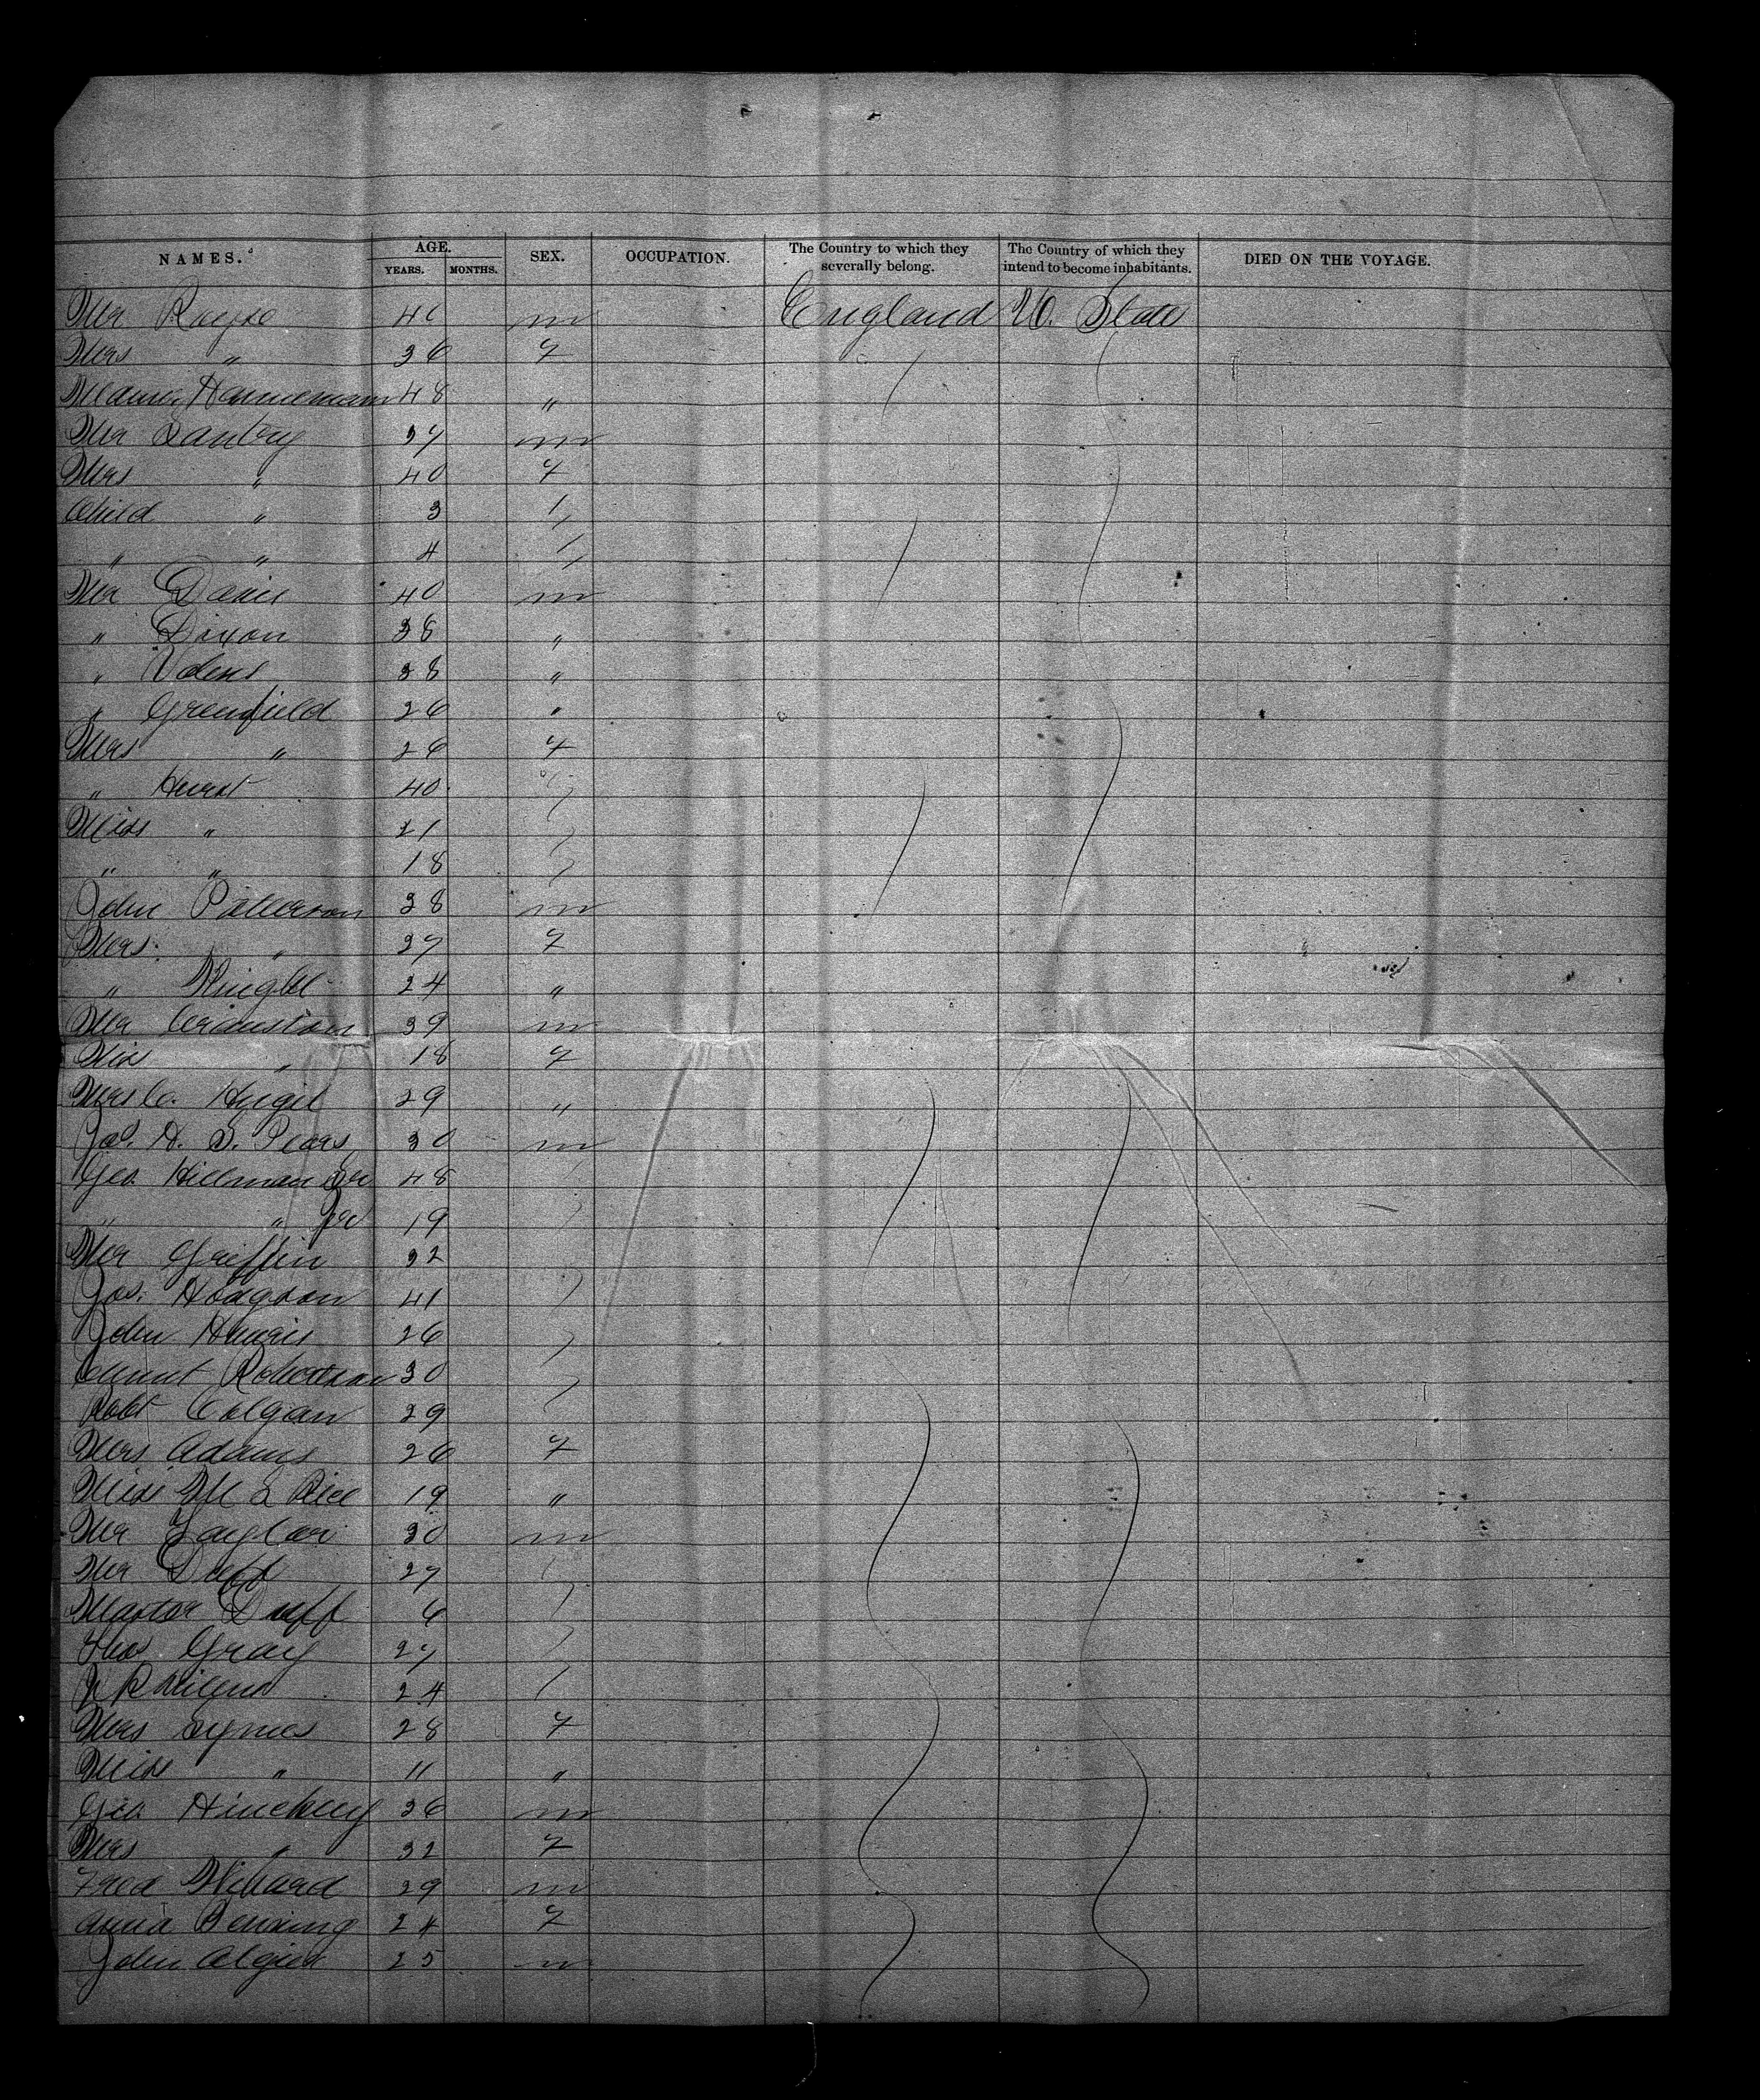 NAMES. AGE. SEX. OCCUPATION. The Country to which they severally belong. The Country of which they intend to become inhabitants. DIED ON THE VOYAGE.
YEARS. MONTHS.
Mr 40 m England U. State
Mrs " 36 F
Hannemann 48 "
Mr 37 m
Mrs " 40 F
Child " 3
" " 4
Mr Davis 40 m
" Dixon 38 "
" 38 "
" Greenfield 26 "
Mrs " 26 F
" Hurst 40
Miss " 21
" " 18
John Patterson 38 m
Mrs. " 37 F
" 24 "
Mr Cranston 39 m
Miss " 18 F
Mrs C. 29 "
Jas. H. S. 30 m
Geo. Hillman Sr 48
" " Jr 19
Mr Griffin 32
Jos. Hodgson 41
John Harris 26
Robertson 30
Robt Colgan 29
Mrs Adams 26 F
Miss M L Rice 19 "
Mr Taylor 30 m
Mr Duff 27
Master Duff 6
Thos Gray 27
J R 24
Mrs Symes 28 F
Miss " 11 "
Geo. Hinchley 36 m
Mrs " 32 F
Fred 29 m
Anna 24 F
John 25 m